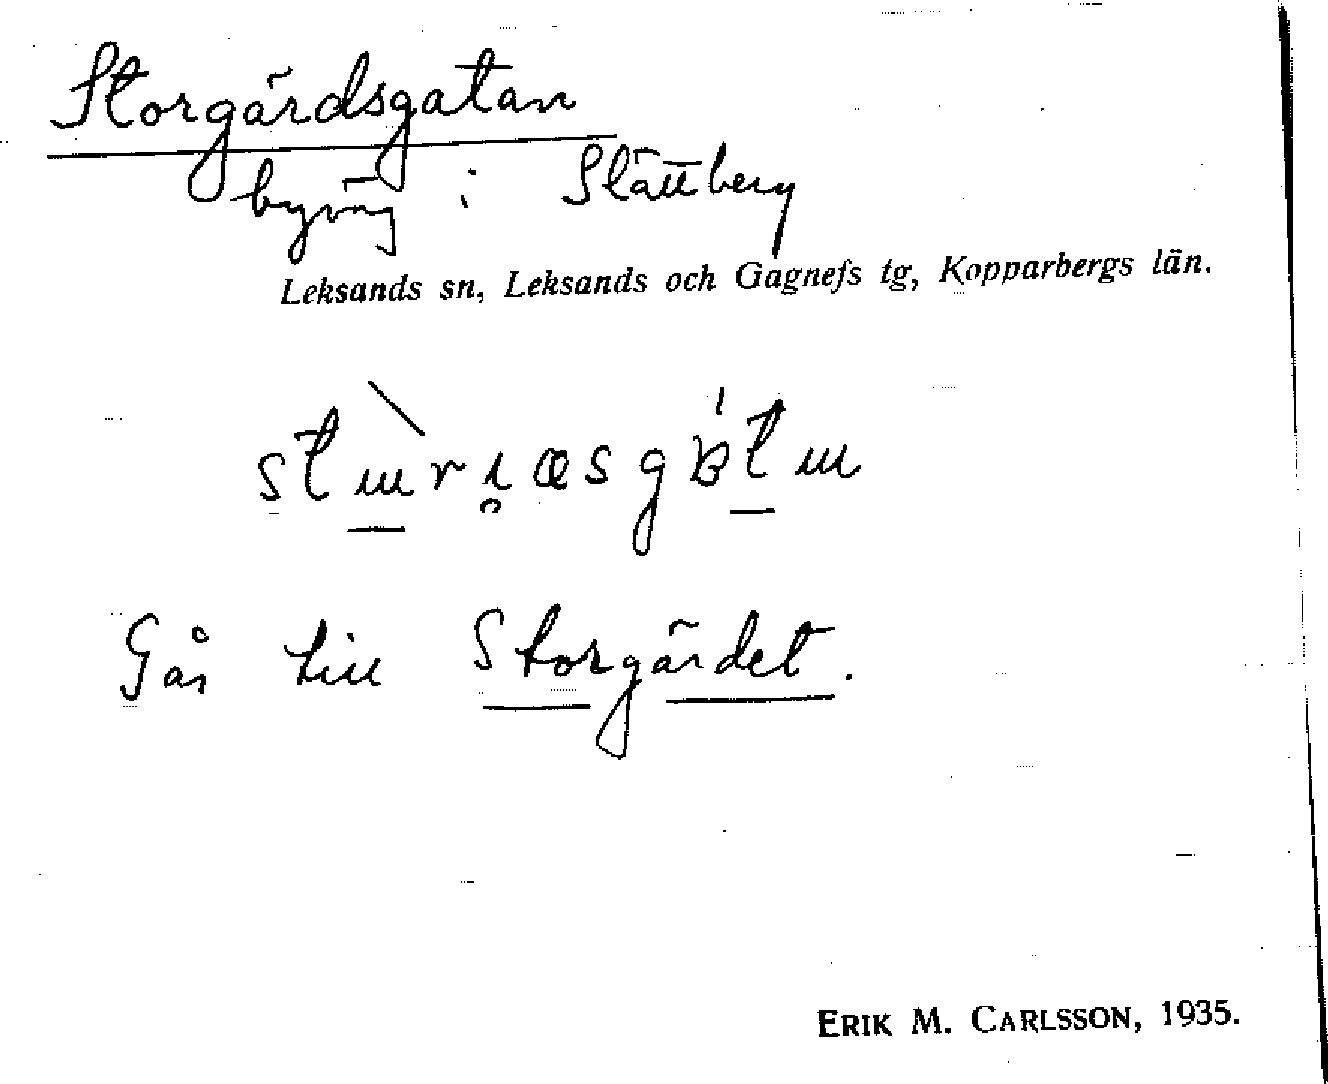 Storgärdsgatan
byväg i Slättberg
Leksands sn, Leksands och Gagnefs tg, Kopparbergs län.
Går till Storgärdet.
ERIK M. CARLSSON, 1935.